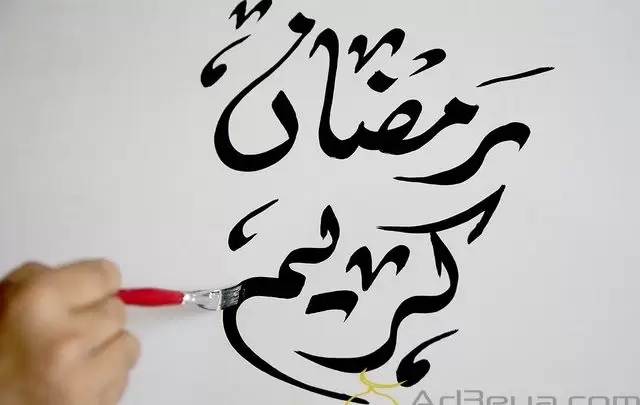 رمضان
كريم
Ad3eya.com